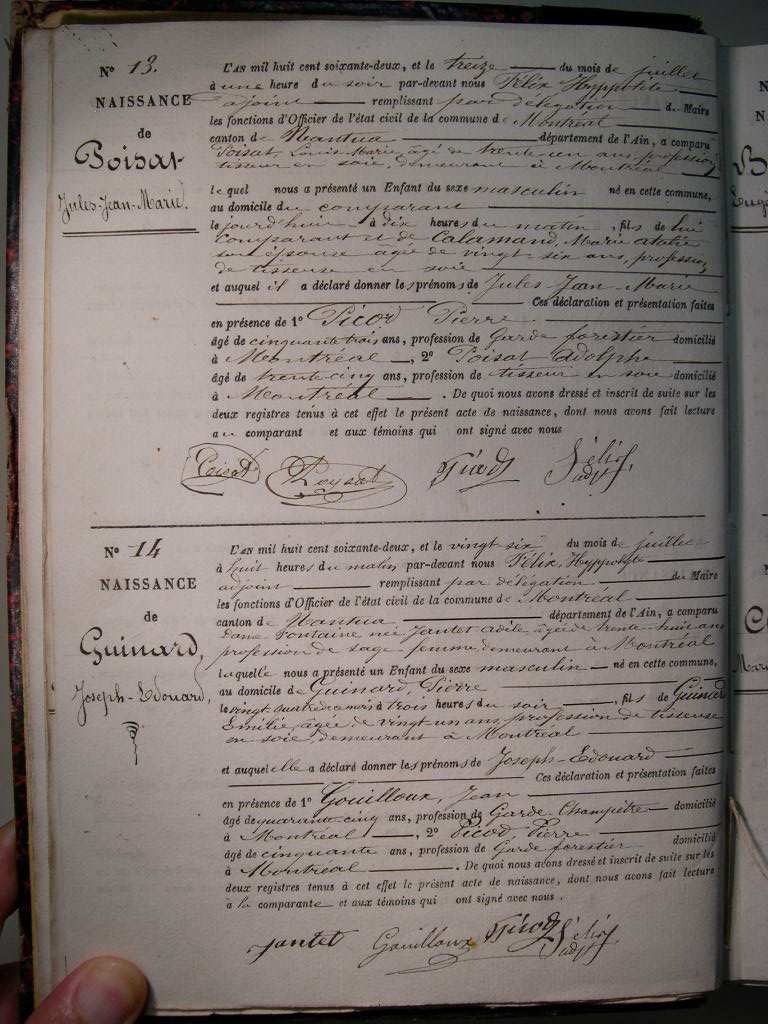 N° 13.
NAISSANCE
de
Poisat
Jules-Jean-Marie.
L'AN mil huit cent soixante-deux, et le treize du mois de juillet
à une heure du soir par-devant nous Félix Hyppolite
ajoint remplissant par délégation du Maire
les fonctions d'Officier de l'état civil de la commune de Montréal
canton de Nantua département de l'Ain, a comparu
Poisat, Louis-Marie, âgé de trente-un ans, profession
tisseur en soie, demeurant à Montréal
lequel nous a présenté un Enfant du sexe masculin né en cette commune,
au domicile du comparant
le jourd'huis à dix heures du matin, fils de lui
comparant et de Calamand, Marie
son épouse agée de vingt six ans, profession
de tisseuse en soie
et auquel il a déclaré donner les prénoms de Jules Jean Marie
Ces déclaration et présentation faites
en présence de 1° Picod Pierre
âgé de cinquante trois ans, profession de Garde forestier domicilié
à Montréal, 2° Poisat Adolphe
âgé de trente cinq ans, profession de tisseur en soie domicilié
à Montréal. De quoi nous avons dressé et inscrit de suite sur les
deux registres tenus à cet effet le présent acte de naissance, dont nous avons fait lecture
au comparant et aux témoins qui ont signé avec nous
Poisat Poysat Picod Félix adjt
N° 14
NAISSANCE
de
Guinard,
Joseph-Edouard,
L'AN mil huit cent soixante-deux, et le vingt six du mois de juillet
à huit heures du matin par-devant nous Félix, Hyppolyte
adjoint remplissant par délégation du Maire
les fonctions d'Officier de l'état civil de la commune de Montréal
canton de Nantua, département de l'Ain, a comparu
Dame Fontaine née Jantet Adèle agée de trente-huit ans
profession de sage femme demeurant à Montréal
laquelle nous a présenté un Enfant du sexe masculin né en cette commune,
au domicile de Guinard, Pierre
le vingt quatre à trois heures du soir, fils de Guinard
Emilie, âgée de vingt un ans, profession de tisseuse
en soie, demeurant à Montréal
et auquel elle a déclaré donner les prénoms de Joseph-Edouard
Ces déclaration et présentation faites
en présence de 1° Gouilloux, Jean
âgé de quarante cinq ans, profession de Garde Champêtre domicilié
à Montréal, 2° Picod Pierre
âgé de cinquante ans, profession de Garde forestier domicilié
à Montréal. De quoi nous avons dressé et inscrit de suite sur les
deux registres tenus à cet effet le présent acte de naissance, dont nous avons fait lecture
à la comparante et aux témoins qui ont signé avec nous.
Jantet Gouilloux Picod Félix adjt